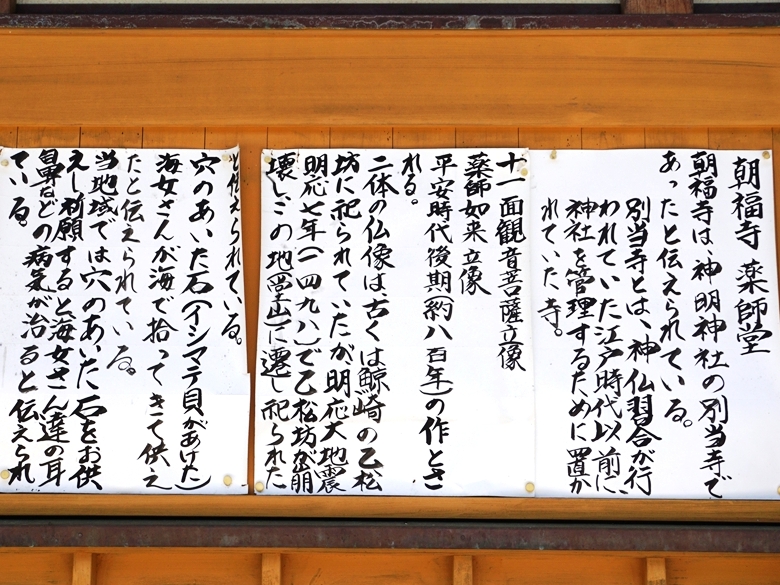 朝福寺 薬師堂
朝福寺は、神明神社の別当寺で
あったと伝えられている。
別当寺とは、神仏習合が行
われていた江戸時代以前に、
神社を管理するために置か
れていた寺。
十一面観音菩薩立像
薬師如来立像
平安時代後期(約八百年)の作とさ
れる。
二体の仏像は、古くは鯨崎の乙松
坊に祀られていたが明応大地震
明応七年(一四九八)で乙松坊が崩
壊し、この地(堂山)に遷し祀られた
と伝えられている。
穴のあいた石(イシマテ貝があけた)
海女さんが海で拾ってきて供え
たと伝えられている。
当地域では穴のあいた石をお供
えし祈願すると海女さん達の耳
鼻などの病気が治ると伝えられ
ている。